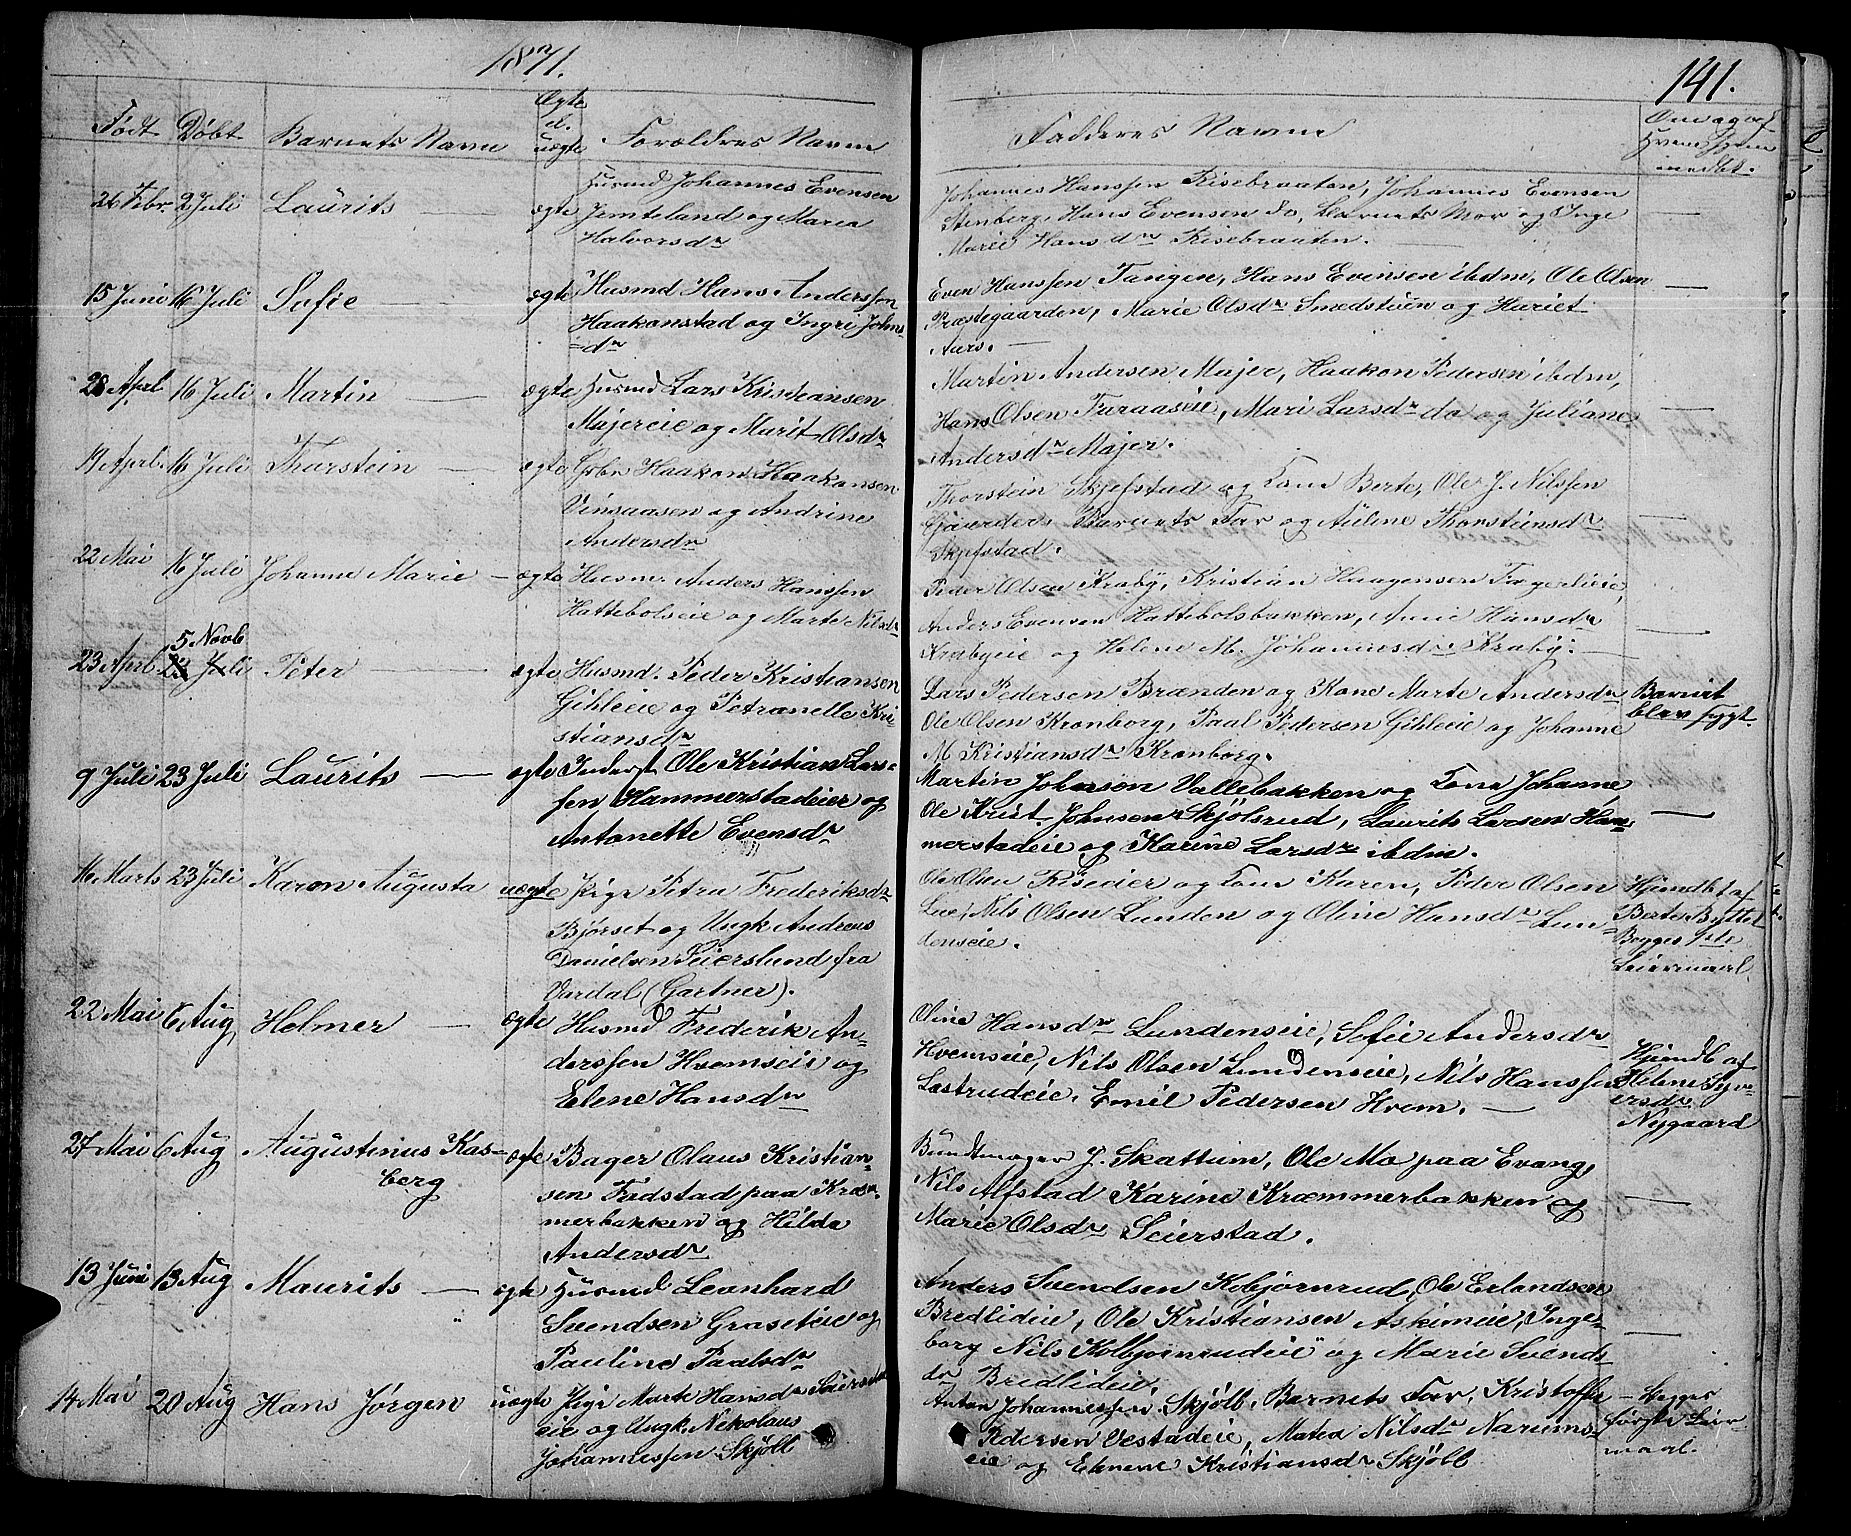 1871.
141.
Født Døbt Barnets Navn Ægte el. uægte Forældres Navne
Fadderes Navne
Om og af Hvem hjemmedbt.
26 Febr. 2 Juli Laurits — ægte Husmd Johannes Evensen
Jemteland og Maren
Halvorsdr
Johannes Hanssen Risebraaten, Johannes Evensen
Stenberg, Hans Evensen do, Barnets Mor og Inge
Marie Hansdr Risebraaten. —
15 Juni 16 Juli Sofie — ægte Husmd Hans Anderssen
Haakonstad og Ingri Johns
=dr
Even Hanssen Tangen, Hans Evensen ibdm, Ole Olsen
Præstegaarden, Marie Olsdr Smedstuen og Hariet
Aurs. —
28 April 16 Juli Martin — ægte Husmd Lars Kristiansen
Majereie og Marit Olsdr
Martin Andersen Majer, Haakon Pedersen ibdm,
Hans Olsen Furaaseie, Mari Larsdr do og Juliane
Andersdr Majer.
19 April 16 Juli Thorstein — ægte Gbr Haakon Haakonsen
Vinsaasen og Andrine
Andersdr
Thorstein Skjefstad og Kone Berte, Ole J. Nilssen
Gaarder, Barnets Far og Aulene Thorstensdr
Skjefstad.
22 Mai 16 Juli Johanne Marie — ægte Husm. Anders Hanssen
Hattebolseie og Marte Nilsdr
Peder Olsen Kraby, Kristian Haagensen Fagerlieie,
Anders Evensen Hattebolsbakken, Anne Hansdr
Krabyeie og Helene M. Johannesdr Kraby. —
5 Novb
23 April 23 Juli Peter — ægte Husmd. Peder Kristiansen
Gihleeie og Petranelle Kri-
stiansdr
Lars Pedersen Brænden og Kone Marte Andersdr
Ole Olsen Kronborg, Paal Pedersen Gihleeie og Johanne
M Kristiansdr Kronborg.
Barnet
blev sygt.
9 Juli 23 Juli Laurits — ægte Inderst Ole Kristian Lars=
sen Hammerstadeie og
Antonette Evensdr
Martin Johnsen Vallebakken og Kone Johanne,
Ole Krist. Johnsen Skjølsrud, Laurits Larsen Ham-
merstadeie og Karine Larsdr ibdm.
16 Marts 23 Juli Karen Augusta uægte Pige Petra Frederiksdr
Bjørset og Ungk Andreas
Danielsen Seierslund fra
Vardal (Gartner).
Ole Olsen Riseeier og Kone Karen, Peder Olsen
Nils Olsen Lunden og Oline Hansdr Lun-
denseie.
Hjemdbt af
Berte
Begges 1ste
Leiermaal
22 Mai 6 Aug Helmer — ægte Husmd Frederik An-
derssen Hvemseie og
Elene Hansdr
Oline Hansdr Lundenseie, Sofie Andersdr
Hvemseie, Nils Olsen Lundenseie, Nils Hanssen
Lastrudeie, Emil Pedersen Hvem. —
Hjemdb af
Helene Syv-
ersdr
Nygaard
27 Mai 6 Aug Augustinus Kas=
berg
ægte Bager Olaus Kristian-
sen Fredstad paa Kræm-
merbakken og Hilda
Andersdr
Bundtmager J. Skattum, Ole Mo paa Evang,
Nils Alfstad Karine Kræmmerbakken og
Marie Olsdr Seierstad.
13 Juni 13 Aug Maurits — ægte Husmd Leonhard
Svendsen Graseteie og
Pauline Paalsdr
Anders Svendsen Kolbjørnrud, Ole Erlandsen
Bredlideie, Ole Kristiansen Askimeie, Inge=
borg Nils Kolbjørnrudeie og Marie Svends-
dr Bredlideie.
14 Mai 20 Aug Hans Jørgen uægte Pige Marte Hansdr
eie og Ungk. Nikolaus
Johannessen Skjøll
Anton Johannessen Skjøll, Barnets Far, Kristoffer
Pedersen Vestadeie, Mathea Nilsdr Narums-
eie og Elmene Kristiansdr Skjøll
Begges
første Leier-
maal.